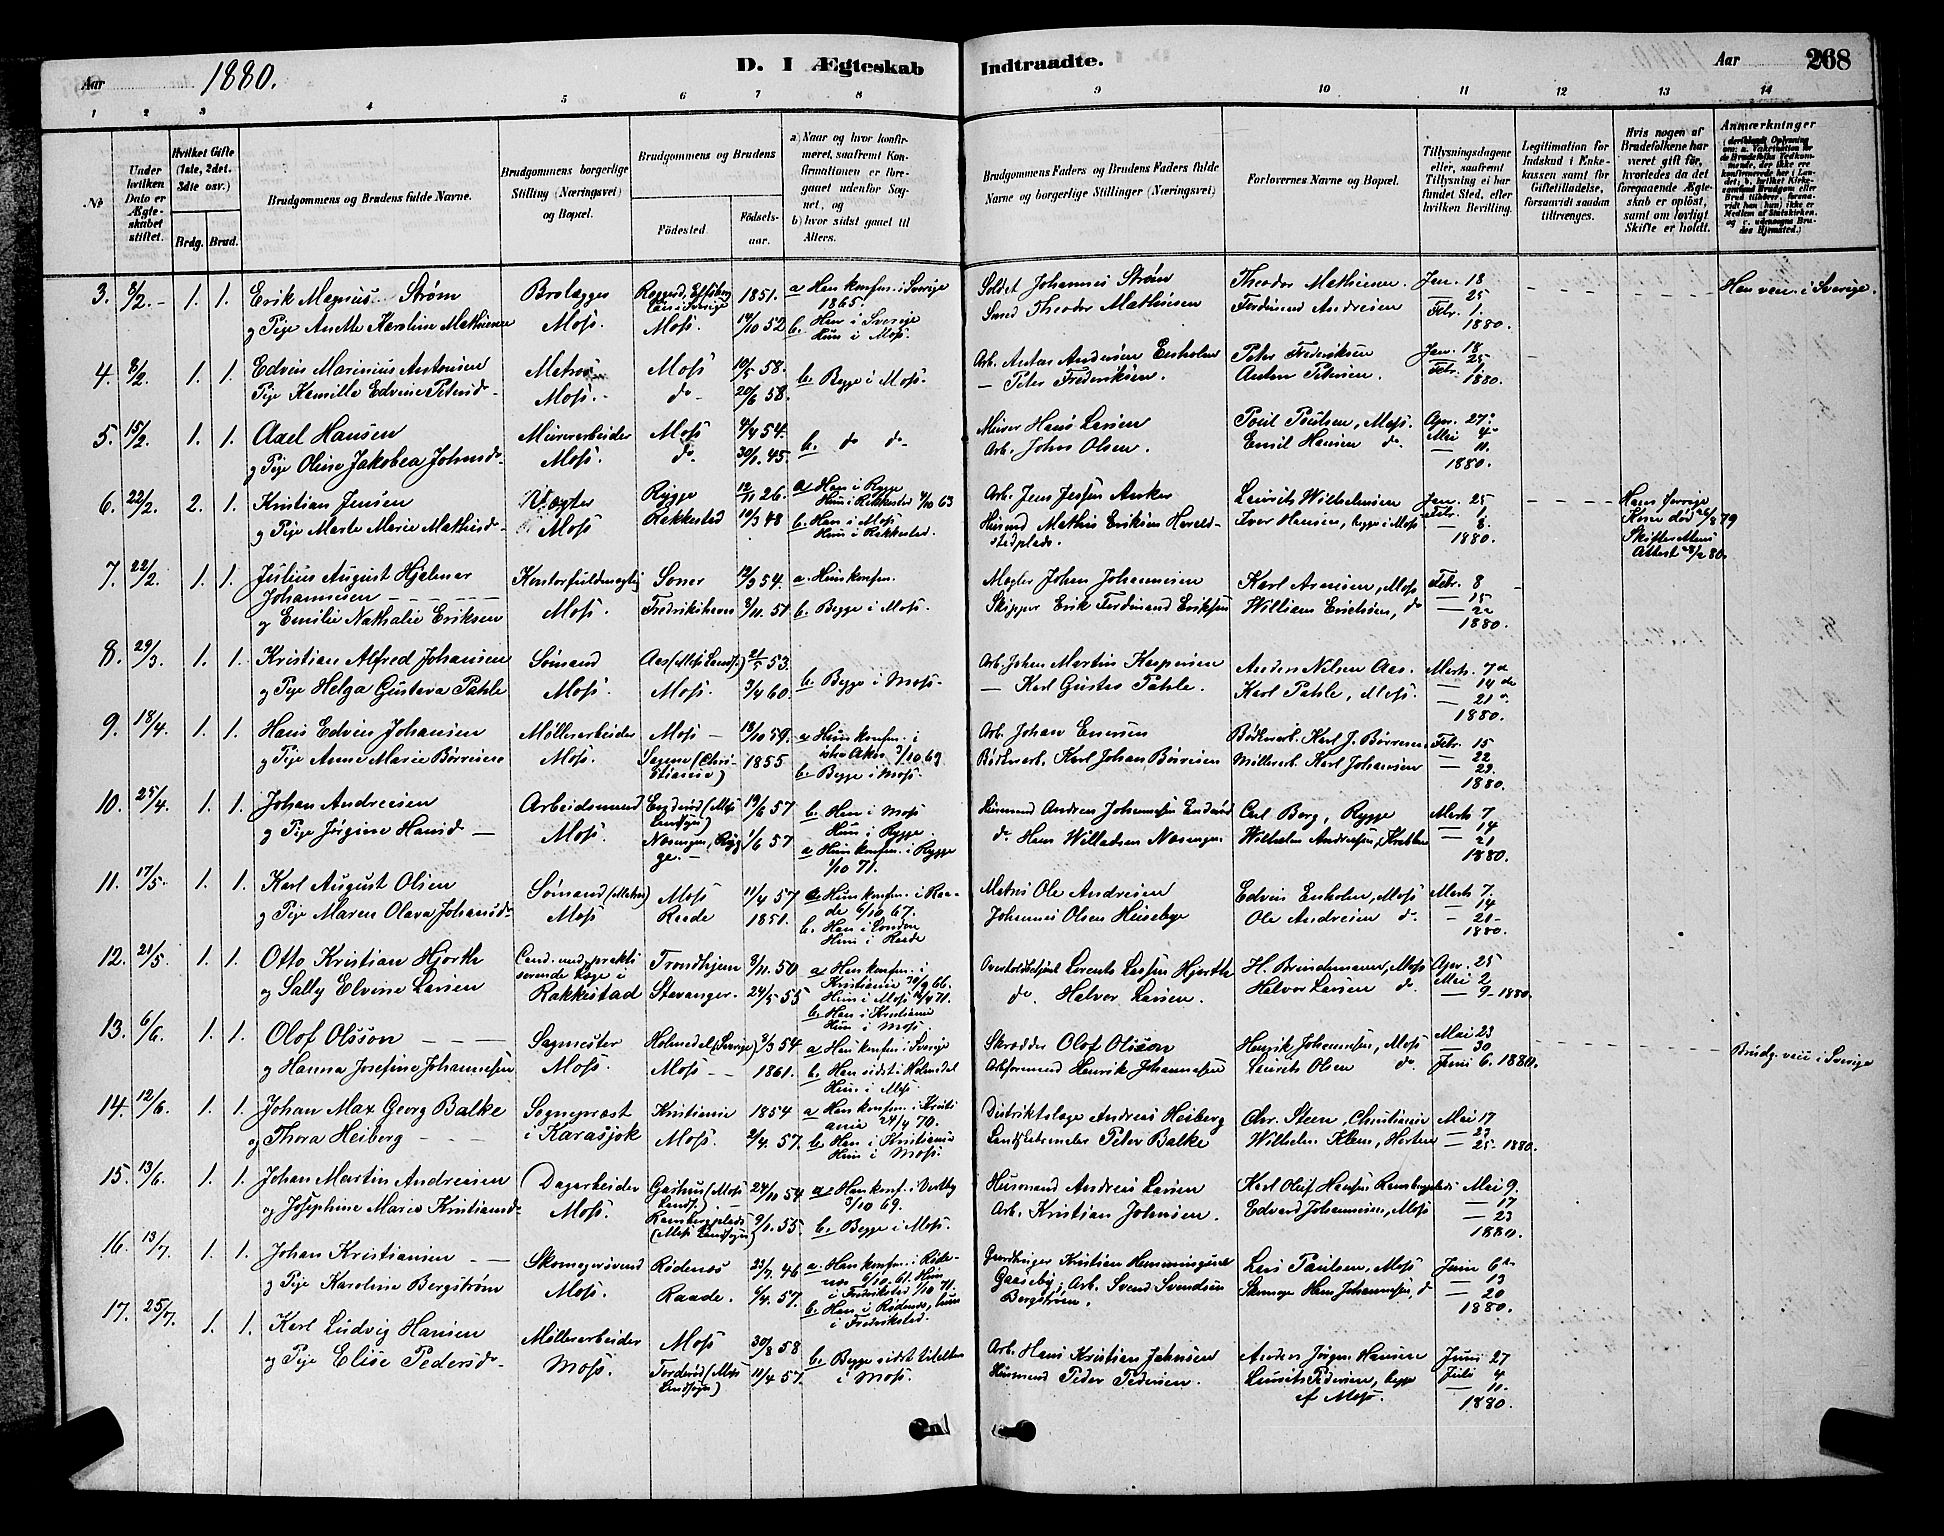 Aar 1880.
D. I Ægteskab Indtraadte.
Aar 268
1 2 3 4 5 6 7 8 9 10 11 12 13 14
No
Under hvilken Dato er Ægteskabet stiftet.
Hvilket Gifte (1ste, 2det, 3dte osv.)
Brdg. Brud.
Brudgommens og Brudens fulde Navne.
Brudgommens borgerlige Stilling (Næringsvei) og Bopæl.
Brudgommens og Brudens
Fødested.
Fødselsaar.
a) Naar og hvor konfirmeret, saafremt Konfirmationen er foregaaet udenfor Sognet, og
b) hvor sidst gaaet til Alters.
Brudgommens Faders og Brudens Faders fulde Navne og borgerlige Stillinger (Næringsvei)
Forlovernes Navne og Bopæl.
Tillysningsdagene eller, saafremt Tillysning ei har fundet Sted, efter hvilken Bevilling.
Legitimation for Indskud i Enkekassen samt for Giftetilladelse, forsaavidt saadan tiltrænges.
Hvis nogen af Brudefolkene har været gift før, hvorledes da det foregaaende Ægteskab er opløst, samt om lovligt Skifte er holdt.
Anmærkninger
3. 8/2 1. 1. Erik Magnus Strøm Brolægger 1851. a Han konfm. i Sverige 1865. Soldat Johannes Strøm Theodor Mathiesen Jan. 18 Han veu i Sverige.
og Pige Anette Karoline Mathiesen Moss. Moss. 14/10 52 b. Han i Sverige Hun i Moss. Smed Theodor Mathiesen Ferdinand Andresen — 25 Febr. 1. 1880.
4. 8/2. 1. 1. Edvin Marinius Antonsen Matros Moss 10/5 58. b. Begge i Moss. Arb. Anton Andersen Enholm Peter Frederiksen Jan. 18 — 25
Pige Kamilla Edvine Petersd. Moss. do 20/6 58. — Peter Frederiksen. Anton Petersen. Febr. 1 1880.
5. 15/2. 1. 1. Axel Hansen Murerarbeider Moss 4/4 54. b. do do Murer Hans Larsen Poul Poulsen, Moss. Apr. 27. Mai 4
og Pige Oline Jakobea Johnsd. Moss. do. 30/1. 45. Arb. John Olsen. Emil Hansen do — 11. 1880.
6. 22/2. 2. 1. Kristian Jensen Vægter Rygge 12/11 26. a. Han i Rygge Hun i Rakkestad 4/10 63 Arb. Jens Jensen Anker Laurits Wilhelmsen Jan. 25 Hans forrige Kone død 26/8 79
og Pige Marte Marie Mathisd. Moss Rakkestad 10/3 48 b. Han i Moss. Hun i Rakkestad. Husmd. Mathis Eriksen Iver Hansen, begge i Moss Febr. 1 — 8. 1880. Attest 28/2 80.
7. 22/2. 1. 1. Julius August Hjelmar Johannesen Kontorfuldmægtig Soner 12/9 54. a. Hun konfm. Mægler Johan Johannesen Karl Arnesen, Moss Febr. 8
og Emilie Nathalie Eriksen Moss. 9/11. 51 b. Begge i Moss. Skipper Erik Ferdinand Eriksen William Erichsen, do — 15 — 22 1880.
8. 29/3. 1. 1. Kristian Alfred Johansen Sømand Aas (Moss Landsgn.) 21/5 53. b. Begge i Moss. Arb. Johan Martin Kaspersen Anders Nilsen Aas. Marts. 7de — 14de
og Pige Helga Gustava Pahle Moss. Moss. 9/4 60. — Karl Gustav Pahle. Karl Pahle, Moss. — 21 1880.
9. 18/4. 1. 1. Hans Edvin Johansen Møllerarbeider Moss 13/10 59. a Hun konfm. i Aker 3/10 69. Arb. Johan Enersen Bødkerarb. Karl J. Børresen Febr. 15
og Pige Anne Marie Børresen Moss. (Christiania) 1855 b. Begge i Moss. Bødkerarb. Karl Johan Børresen Møllerarb. Karl Johansen — 22 — 29. 1880.
10. 25/4. 1. 1. Johan Andresen Arbeidsmand 19/6 57 b. Han i Moss Hun i Rygge. Husmand Andreas Johannesen Carl Berg, Rygge Marts 7
og Pige Jørgine Hansd. Moss. Rygge. 1/6 57 a. Hun konfm. i Rygge 1/10 71. do. Hans Willadsen Wilhelm Andreasen, — 14 — 21 1880.
11. 17/5. 1. 1. Karl August Olsen Sømand (Matros) Moss 11/4 57 a. Hun konfm. i Raade 6/10 67. Matros Ole Andresen Edvin Enholm, Moss Marts 7.
og Pige Maren Olava Johansd. Moss Raade 1851. b. Han i London Hun i Raade Johannes Olsen Huseby Ole Andresen do. — 14 — 21 1880.
12. 21/5. 1. 1. Otto Kristian Hjorth Cand. med. praktiserende Læge i Trondhjem 9/11. 50 a Han konfm. i Kristiania 30/9 66. Hun i Moss Lorents Hjorth H. Brindemann, Moss Apr. 25
og Sally Elvine Larsen Rakkestad Stavanger. 24/5 55 b. Han i Kristiania Hun i Moss. do. Halvor Larsen. Halvor Larsen do. Mai 2 — 9 - 1880.
13. 6/6. 1. 1. Olof Olsson Sagmester Holmedal (Sverige) 9/3 54 a Han konfm. i Sverige Skrædder Olof Olsson Henrik Johannesen, Moss Mai 23 — 30 Brudg. veu i Sverige
og Hanna Josefine Johannesen Moss. Moss 1861. b. Han sidst i Holmedal Hun i Moss Arbformand Henrik Johannesen Laurits Olsen do. Juni 6. 1880.
14. 12/6. 1. 1. Johan Max Georg Balke Sognepræst Kristiania 1854 a Han konfm. i Kristiania 24/4 70. Distriktslæge Andreas Heiberg Chr. Steen, Christiania Mai 17
og Thora Heiberg i Karasjok Moss. 9/4. 57. b. Han i Kristiania Hun i Moss. Landskabsmaler Peter Balke Wilhelm Klem, Horten — 23 — 25. 1880.
15. 13/6. 1. 1. Johan Martin Andresen Dagarbeider (Moss Landsg.) 24/11 54 a Han konf. i Vestby 3/10 69. Husmand Andreas Larsen Karl Oluf Hansen Mai 9.
og Josephine Marie Kristiansd. Moss. (Moss Landsogn) 9/1. 55. b. Begge i Moss. Arb. Kristian Johnsen. Edvard Johannesen, Moss — 17 — 23 1880.
16. 13/7. 1. 1. Johan Kristiansen Skomagersvend Rødenæs 23/7. 46 a. Han konfm. i Rødenæs 6/10. 61. Hun i Fredrikstad 1/10 71. Gaardbruger Kristian Hemmingsen Lars Paulsen, Moss Juni 6te
og Pige Karoline Bergstrøm Moss. Raade. 9/4. 57. b. Han i Rødenæs, hun i Fredrikstad. Gaaseby; Arb. Svend Svendsen Bergstrøm. Skomag. Hans Johannesen, do — 13 — 20 1880.
17. 25/7. 1. 1. Karl Ludvig Hansen Møllerarbeider Moss 30/8 58 b. Begge sidst tilalters i Moss. Arb. Hans Kristian Jahnsen Anders Jørgen Hansen Juni 27
og Pige Elise Pedersd. Moss. (Moss Landsogn) 11/4 57. Husmand Peder Pedersen. Laurits Pedersen, begge af Moss. Juli 4 — 11. 1880.